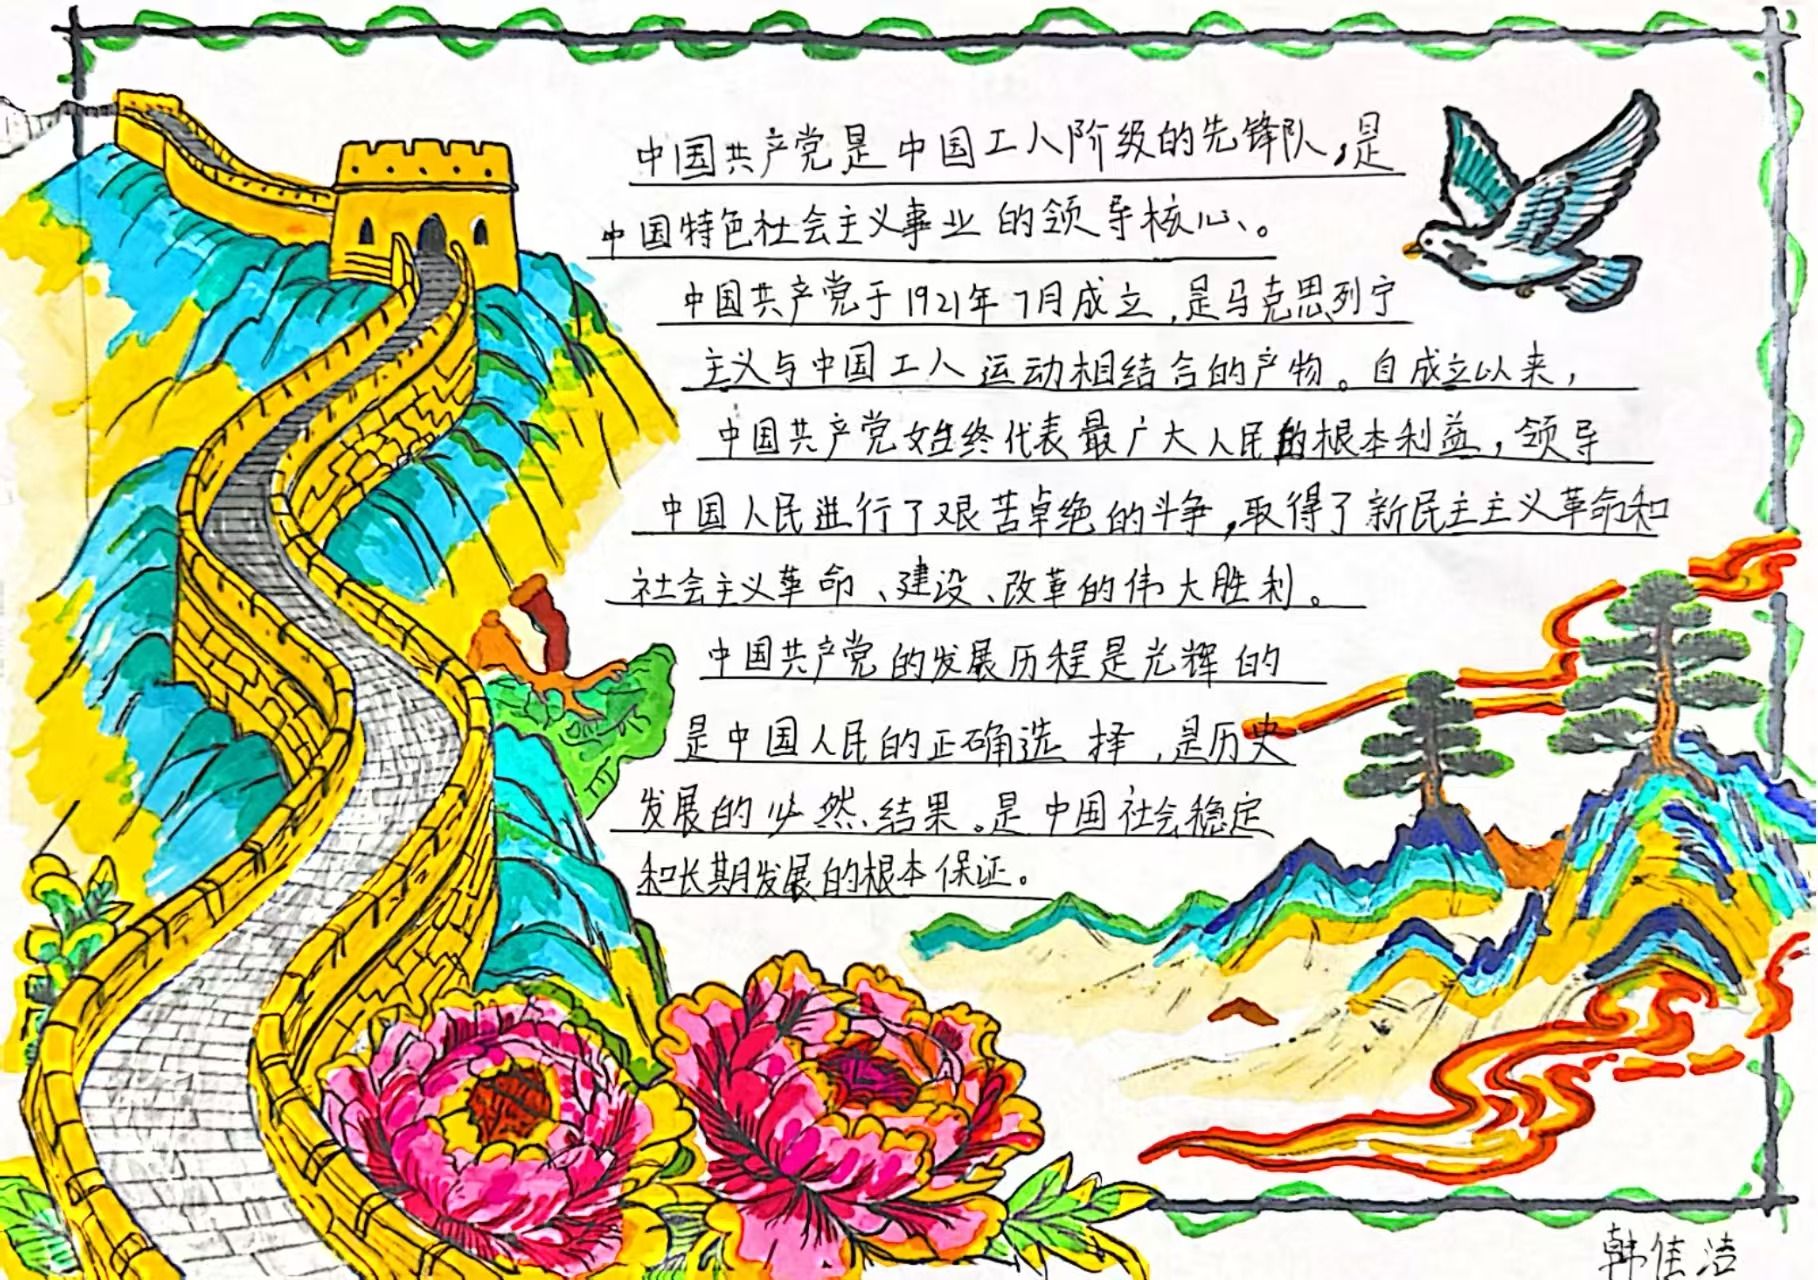 中国共产党是中国工人阶级的先锋队，是
中国特色社会主义事业的领导核心、。
中国共产党于1921年7月成立，是马克思列宁
主义与中国工人运动相结合的产物。自成立以来，
中国共产党始终代表最广大人民的根本利益，领导
中国人民进行了艰苦卓绝的斗争，取得了新民主主义革命和
社会主义革命、建设、改革的伟大胜利。
中国共产党的发展历程是光辉的
是中国人民的正确选择，是历史
发展的必然、结果。是中国社会稳定
和长期发展的根本保证。
韩佳洁